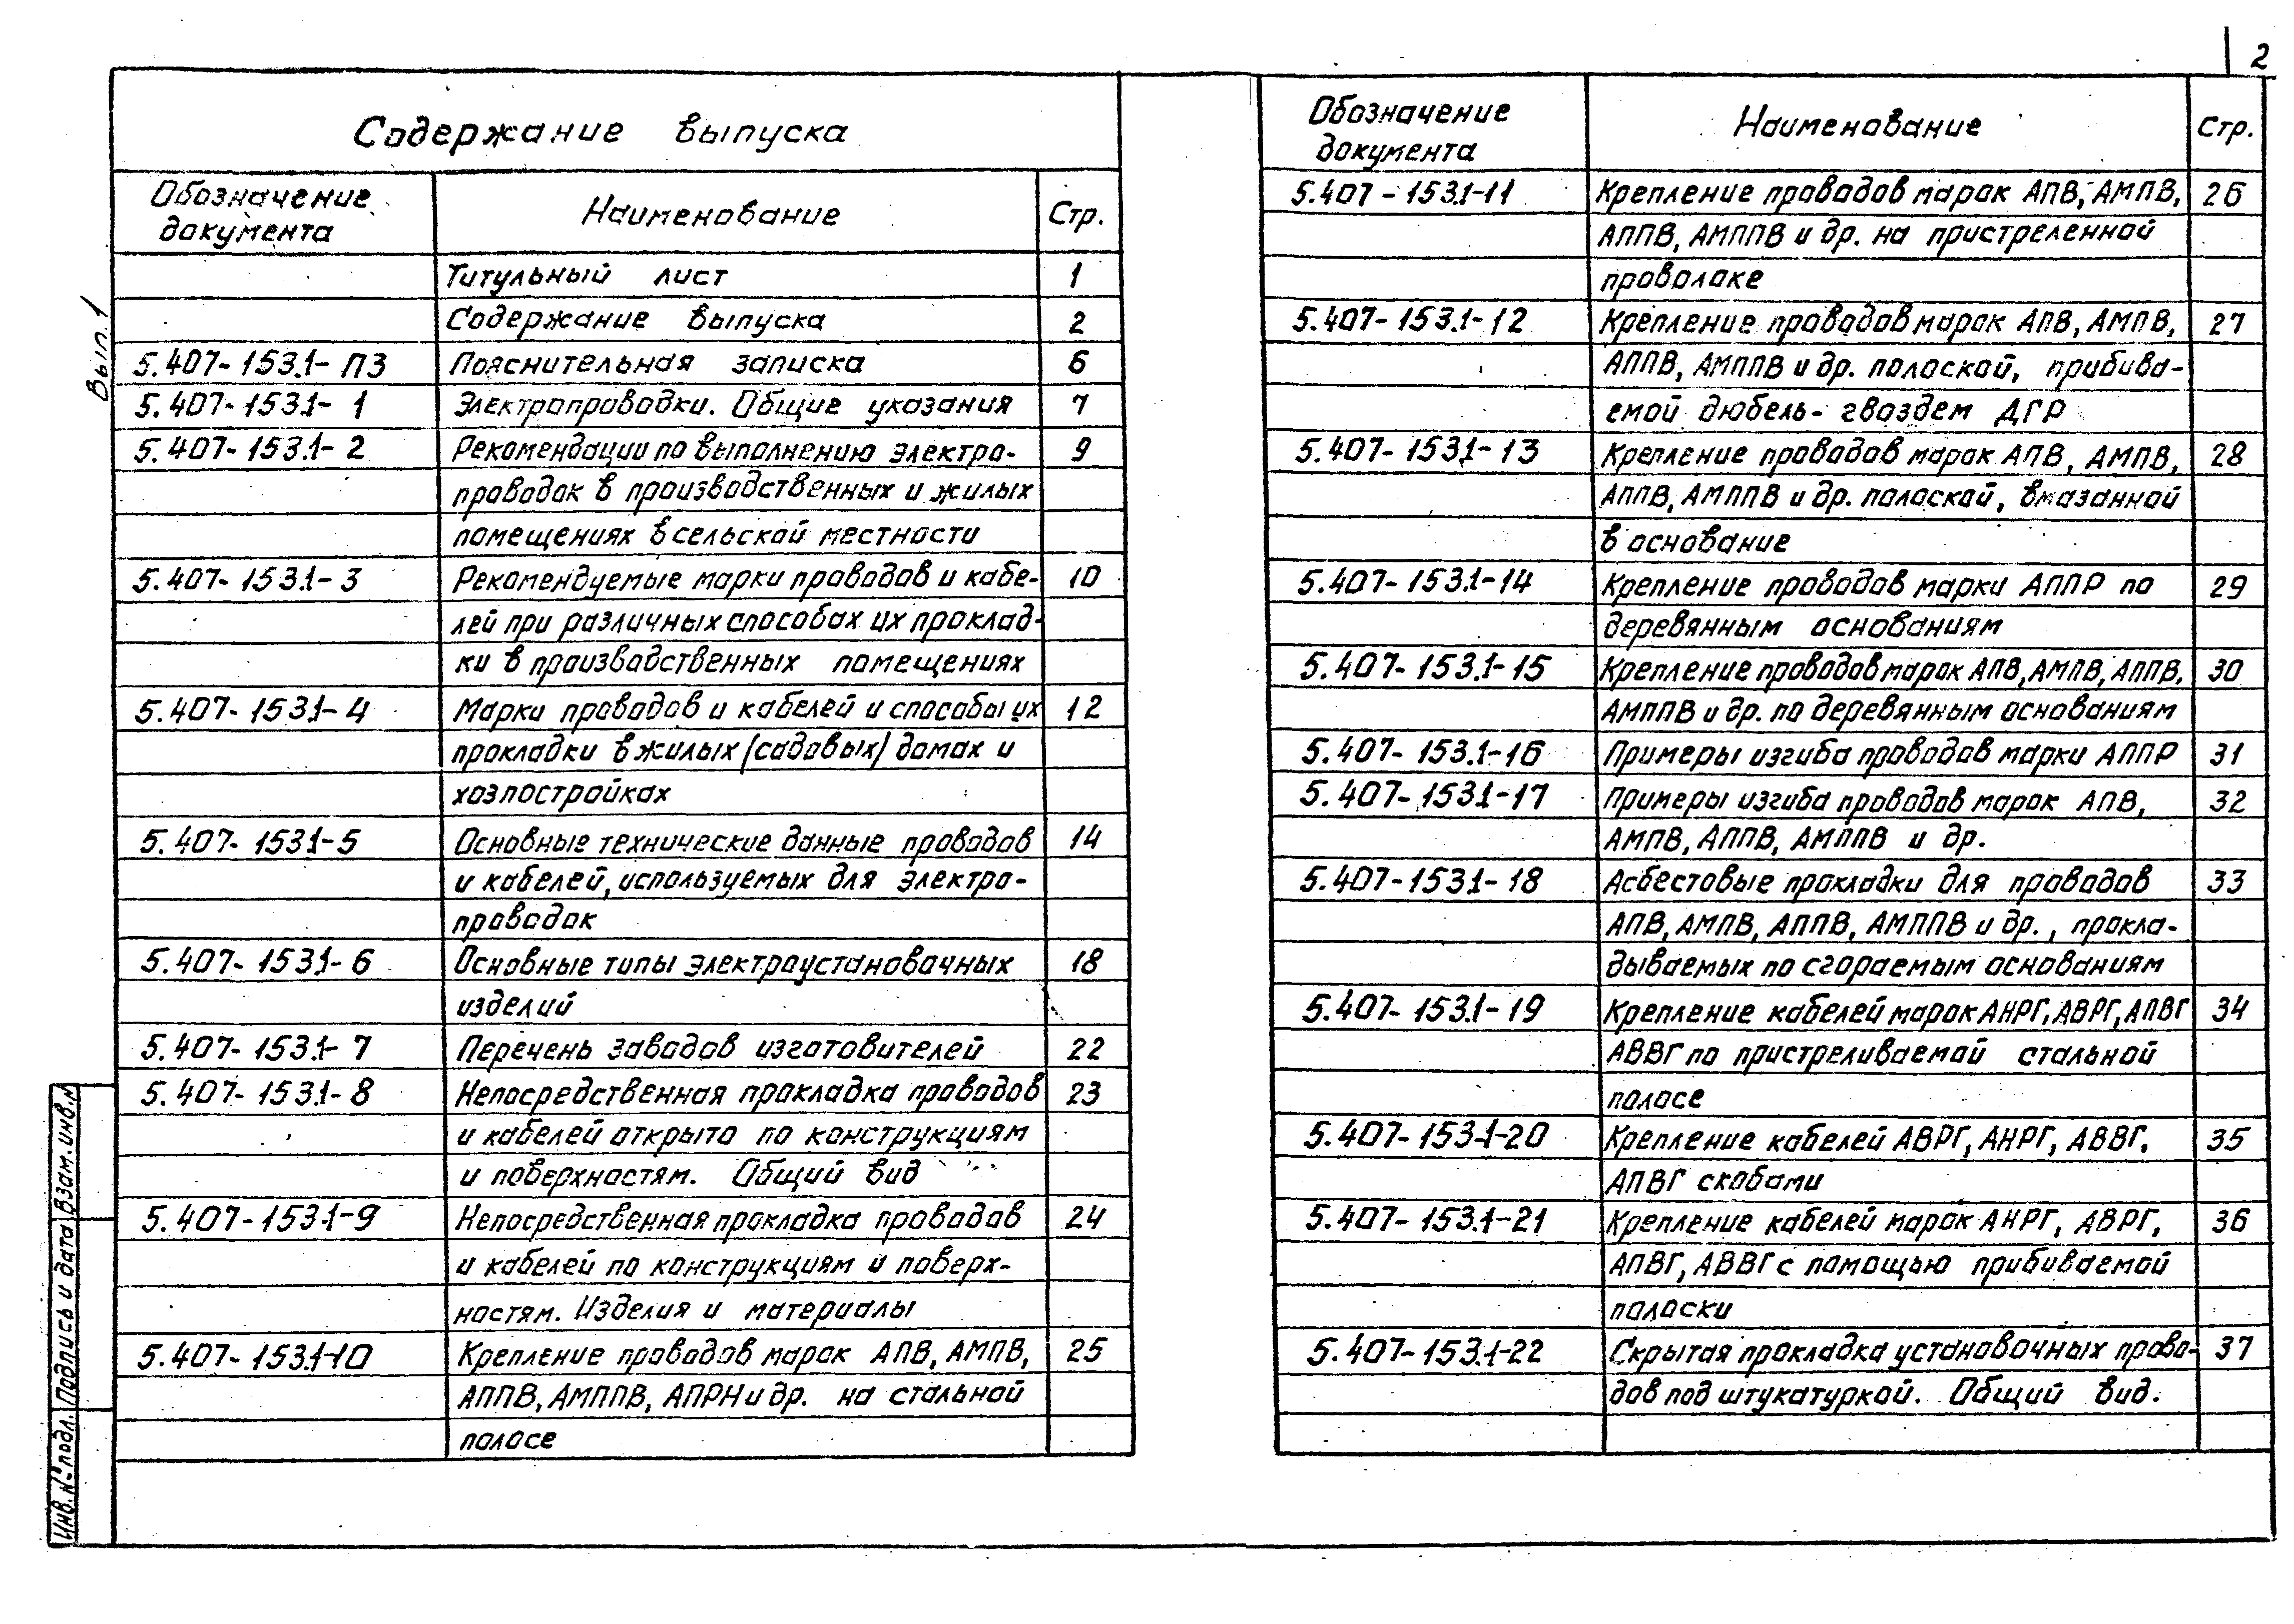 2
Содержание выпуска
Обозначение документа Наименование Стр.
Титульный лист 1
Содержание выпуска 2
5.407-153.1-ПЗ Пояснительная записка 6
5.407-153.1-1 Электропроводки. Общие указания 7
5.407-153.1-2 Рекомендации по выполнению электро- 9
проводок в производственных и жилых
помещениях в сельской местности
5.407-153.1-3 Рекомендуемые марки проводов и кабе- 10
лей при различных способах их проклад-
ки в производственных помещениях
5.407-153.1-4 Марки проводов и кабелей и способы их 12
прокладки в жилых (садовых) домах и
хозпостройках
5.407-153.1-5 Основные технические данные проводов 14
и кабелей, используемых для электро-
проводок
5.407-153.1-6 Основные типы электроустановочных 18
изделий
5.407-153.1-7 Перечень заводов изготовителей 22
5.407-153.1-8 Непосредственная прокладка проводов 23
и кабелей открыто по конструкциям
и поверхностям. Общий вид
5.407-153.1-9 Непосредственная прокладка проводов 24
и кабелей по конструкциям и поверх-
ностям. Изделия и материалы
5.407-153.1-10 Крепление проводов марок АПВ, АМПВ, 25
АППВ, АМППВ, АПРН и др. на стальной
полосе
Обозначение документа Наименование Стр.
5.407-153.1-11 Крепление проводов марок АПВ, АМПВ, 26
АППВ, АМППВ и др. на пристреленной
проволоке
5.407-153.1-12 Крепление проводов марок АПВ, АМПВ, 27
АППВ, АМППВ и др. полоской, прибива-
емой дюбель-гвоздем ДГР
5.407-153.1-13 Крепление проводов марок АПВ, АМПВ, 28
АППВ, АМППВ и др. полоской, вмазанной
в основание
5.407-153.1-14 Крепление проводов марки АППР по 29
деревянным основаниям
5.407-153.1-15 Крепление проводов марок АПВ, АМПВ, АППВ, 30
АМППВ и др. по деревянным основаниям
5.407-153.1-16 Примеры изгиба проводов марки АППР 31
5.407-153.1-17 Примеры изгиба проводов марок АПВ, 32
АМПВ, АППВ, АМППВ и др.
5.407-153.1-18 Асбестовые прокладки для проводов 33
АПВ, АМПВ, АППВ, АМППВ и др., прокла-
дываемых по сгораемым основаниям
5.407-153.1-19 Крепление кабелей марок АНРГ, АВРГ, АПВГ 34
АВВГ по пристреливаемой стальной
полосе
5.407-153.1-20 Крепление кабелей АВРГ, АНРГ, АВВГ, 35
АПВГ скобами
5.407-153.1-21 Крепление кабелей марок АНРГ, АВРГ, 36
АПВГ, АВВГ с помощью прибиваемой
полоски
5.407-153.1-22 Скрытая прокладка установочных прово- 37
дов под штукатуркой. Общий вид.
Вып. 1
Инв. № подл. Подпись и дата Взам. инв. №